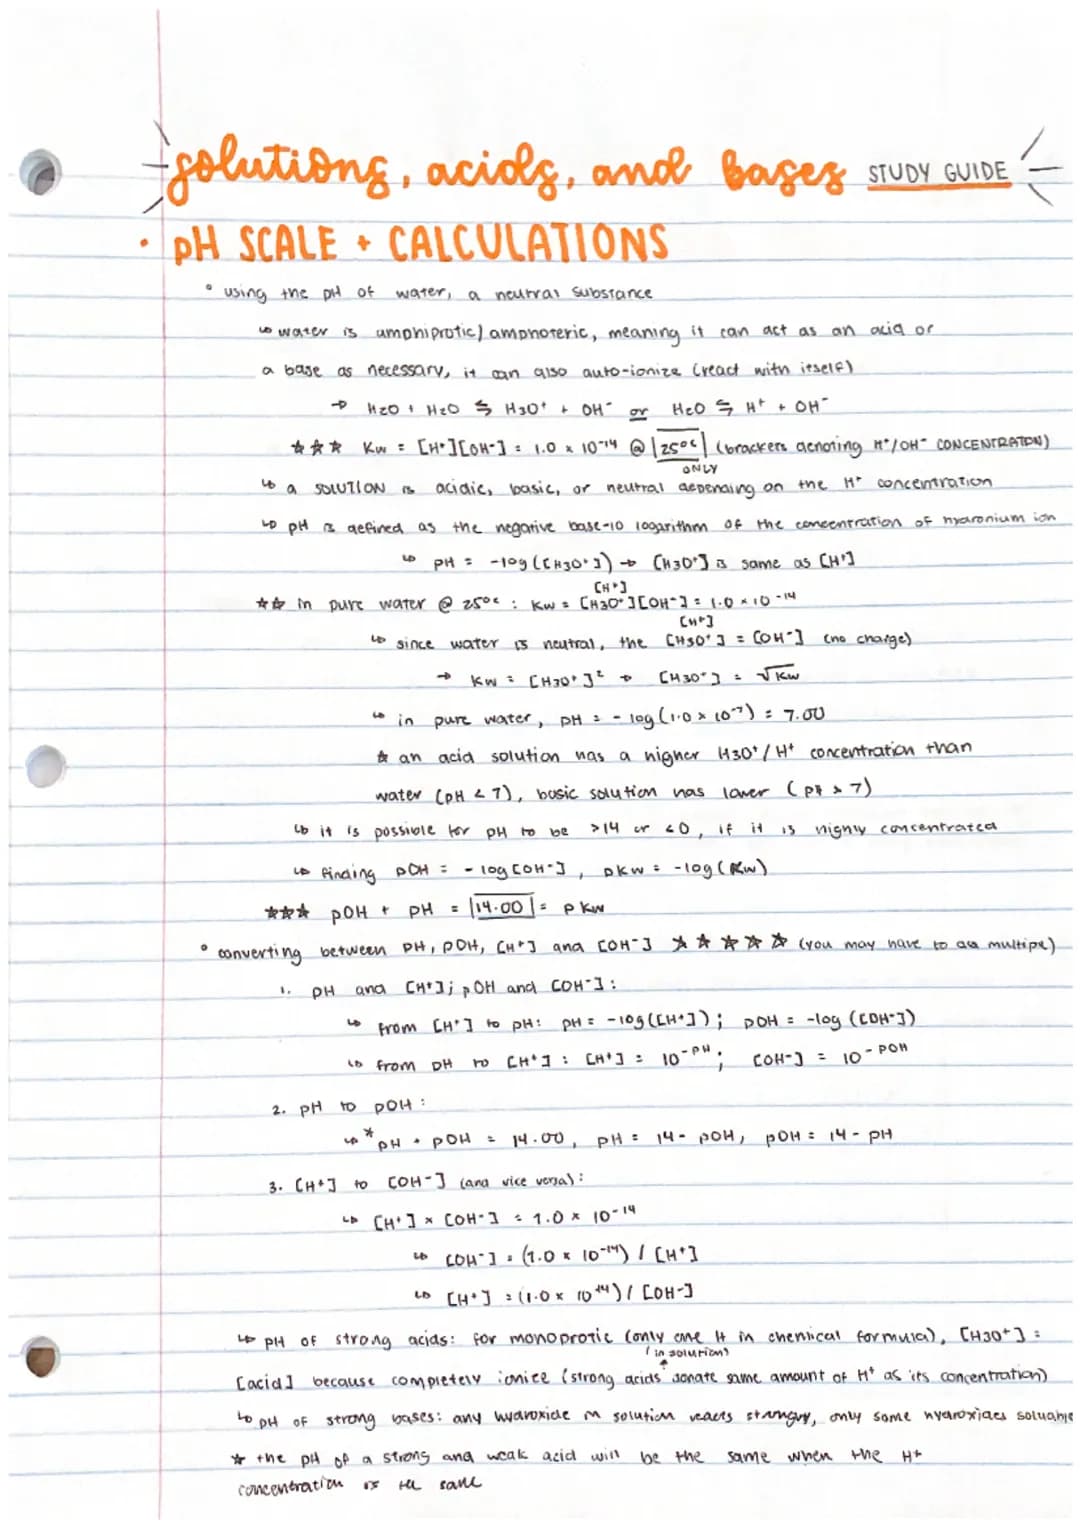 solutions, acids, and bases STUDY GUIDE
• pH SCALE + CALCULATIONS
° using the pH of water, a neutral substance
↳ water is amphiprotic/amphoteric, meaning it can act as an acid or
a base as necessary, it can also auto-ionize (react with itself)
→ H2O + H2O ⇆ H3O⁺ + OH⁻ or H2O ⇆ H⁺ + OH⁻
☆☆☆ Kw = [H⁺][OH⁻] = 1.0 x 10⁻¹⁴ @ |25°C| (brackets denoting H⁺/OH⁻ CONCENTRATION)
ONLY
↳ a SOLUTION is acidic, basic, or neutral depending on the H⁺ concentration
↳ pH is defined as the negative base-10 logarithm of the concentration of hydronium ion
↳ pH = -log([H3O⁺]) → [H3O⁺] is same as [H⁺]
[H⁺]
☆☆ in pure water @ 25°C : Kw = [H3O⁺][OH⁻] = 1.0 x 10⁻¹⁴
[H⁺]
↳ since water is neutral, the [H3O⁺] = [OH⁻] (no charge)
→ Kw = [H3O⁺]² → [H3O⁺] = √Kw
↳ in pure water, pH = - log(1.0 x 10⁻⁷) = 7.00
☆ an acid solution has a higher H3O⁺/H⁺ concentration than
water (pH < 7), basic solution has lower (pH > 7)
↳ it is possible for pH to be >14 or <0, if it is highly concentrated
↳ finding pOH = - log[OH⁻], pKw = -log(Kw)
☆☆☆ pOH + pH = |14.00| = pKw
° converting between pH, pOH, [H⁺] and [OH⁻] ☆☆☆☆☆ (you may have to do multiple)
1. pH and [H⁺]; pOH and [OH⁻]:
↳ from [H⁺] to pH: pH = -log([H⁺]); pOH = -log([OH⁻])
↳ from pH to [H⁺]: [H⁺] = 10⁻ᵖᴴ; [OH⁻] = 10⁻ᵖᴼᴴ
2. pH to pOH:
↳ * pH + pOH = 14.00, pH = 14 - pOH, pOH = 14 - pH
3. [H⁺] to [OH⁻] (and vice versa):
↳ [H⁺] x [OH⁻] = 1.0 x 10⁻¹⁴
↳ [OH⁻] = (1.0 x 10⁻¹⁴) / [H⁺]
↳ [H⁺] = (1.0 x 10⁻¹⁴) / [OH⁻]
↳ pH of strong acids: for monoprotic (only one H in chemical formula), [H3O⁺] =
(in solution)
[acid] because completely ionize (strong acids donate same amount of H⁺ as its concentration)
↳ pH of strong bases: any hydroxide in solution reacts strongly, only some hydroxides soluable
☆ the pH of a strong and weak acid will be the same when the H⁺
concentration is the same